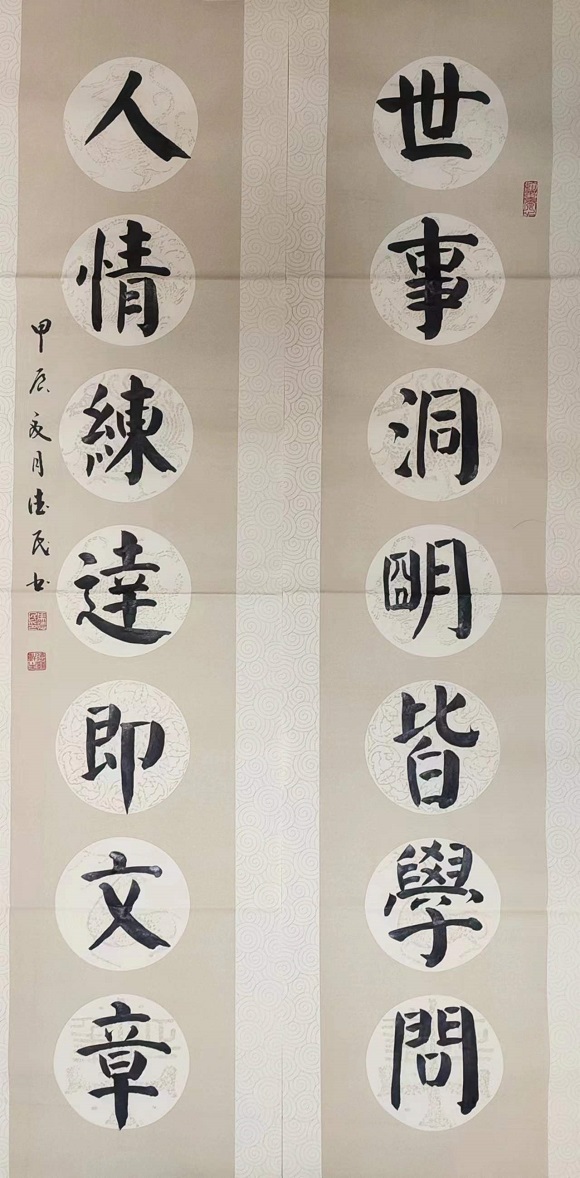 世事洞朙皆學問
人情練達即文章
甲辰夏月德民书